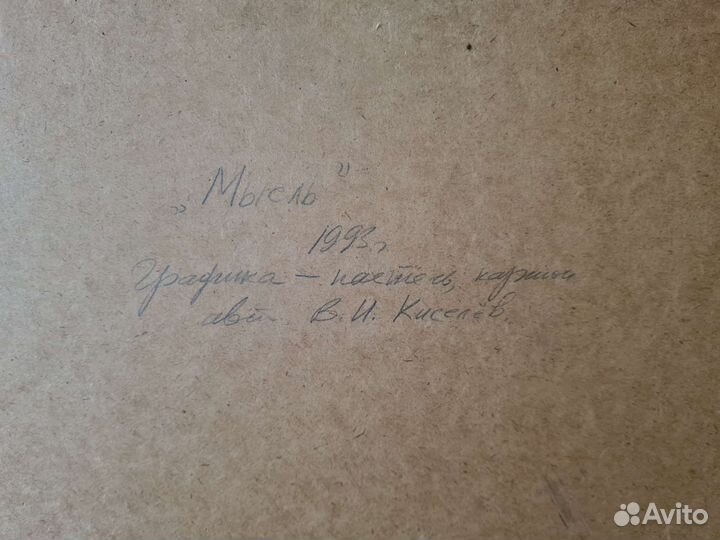 „Мысль"
1993г.
Графика – пастель, картон
авт. В.И. Киселёв.
Avito